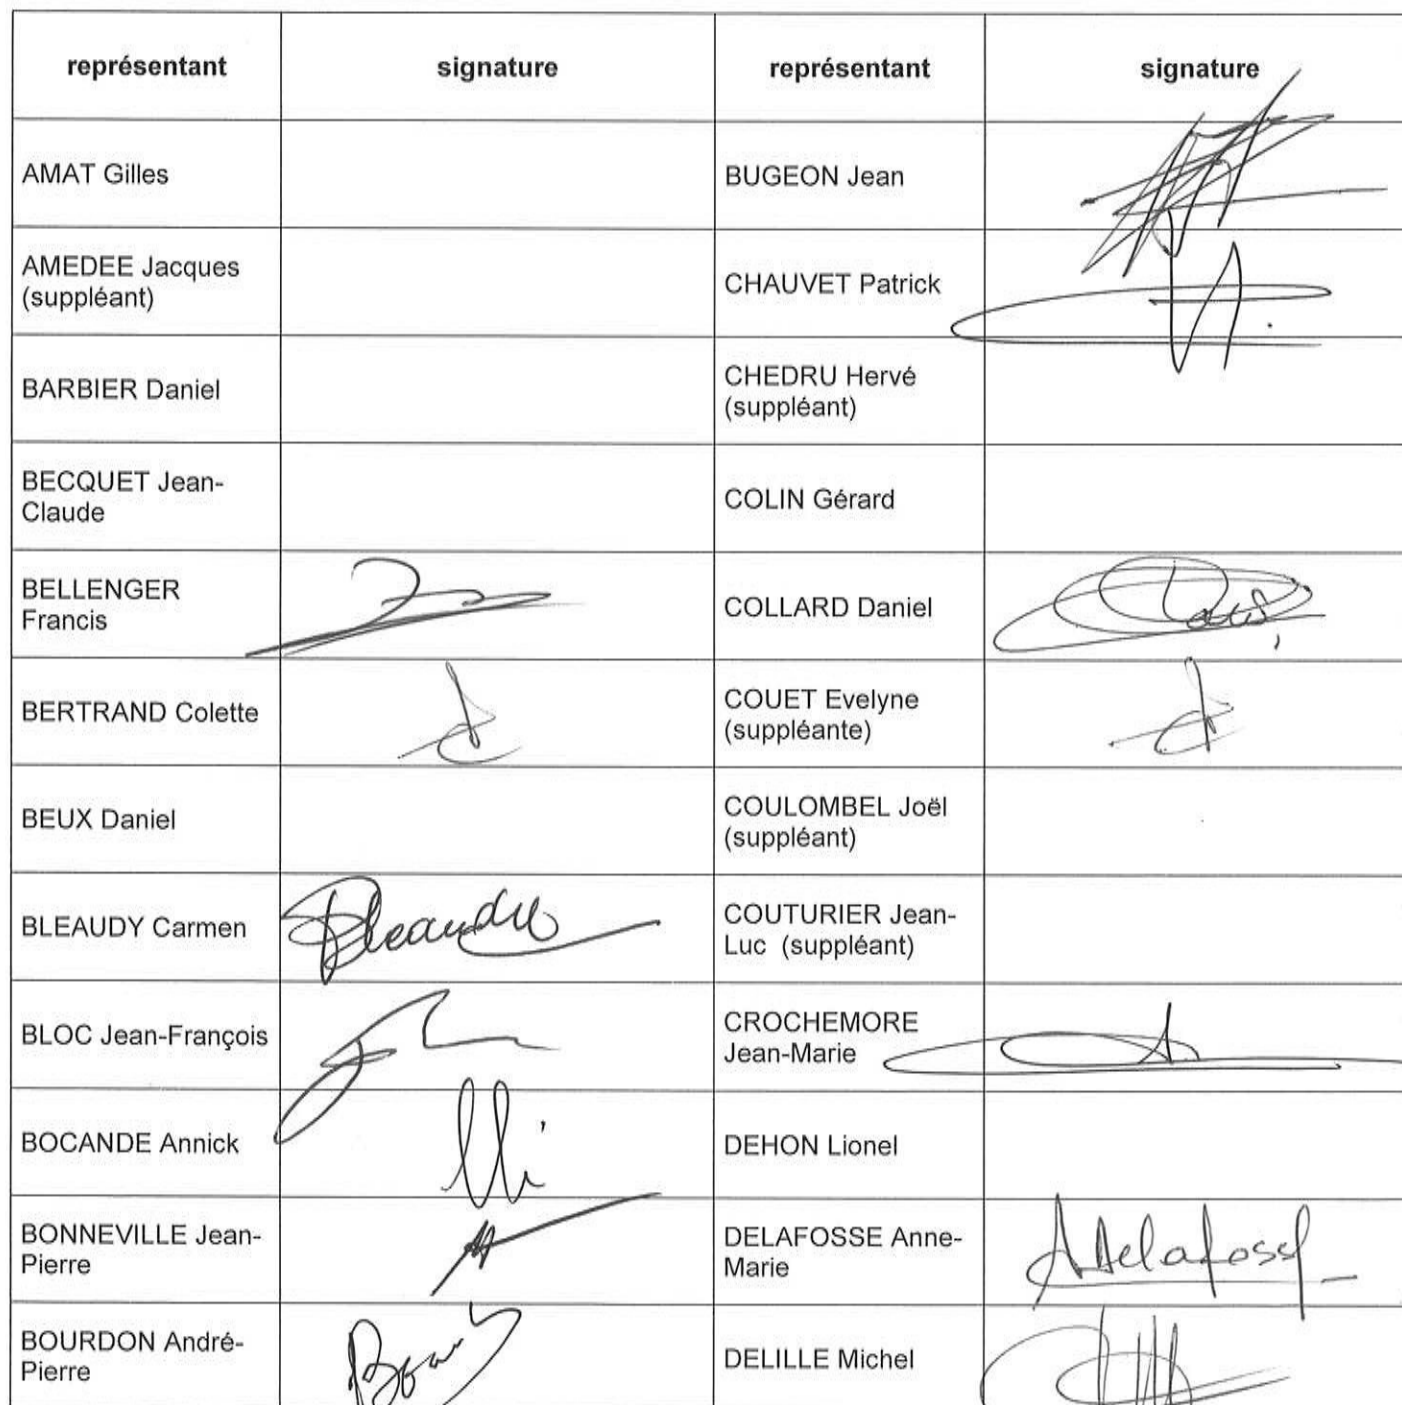 représentant signature représentant signature
AMAT Gilles BUGEON Jean
AMEDEE Jacques
(suppléant) CHAUVET Patrick
BARBIER Daniel CHEDRU Hervé
(suppléant)
BECQUET Jean-
Claude COLIN Gérard
BELLENGER
Francis COLLARD Daniel
BERTRAND Colette COUET Evelyne
(suppléante)
BEUX Daniel COULOMBEL Joël
(suppléant)
BLEAUDY Carmen Bleaudy COUTURIER Jean-
Luc (suppléant)
BLOC Jean-François CROCHEMORE
Jean-Marie
BOCANDE Annick DEHON Lionel
BONNEVILLE Jean-
Pierre DELAFOSSE Anne-
Marie ADelafosse
BOURDON André-
Pierre DELILLE Michel